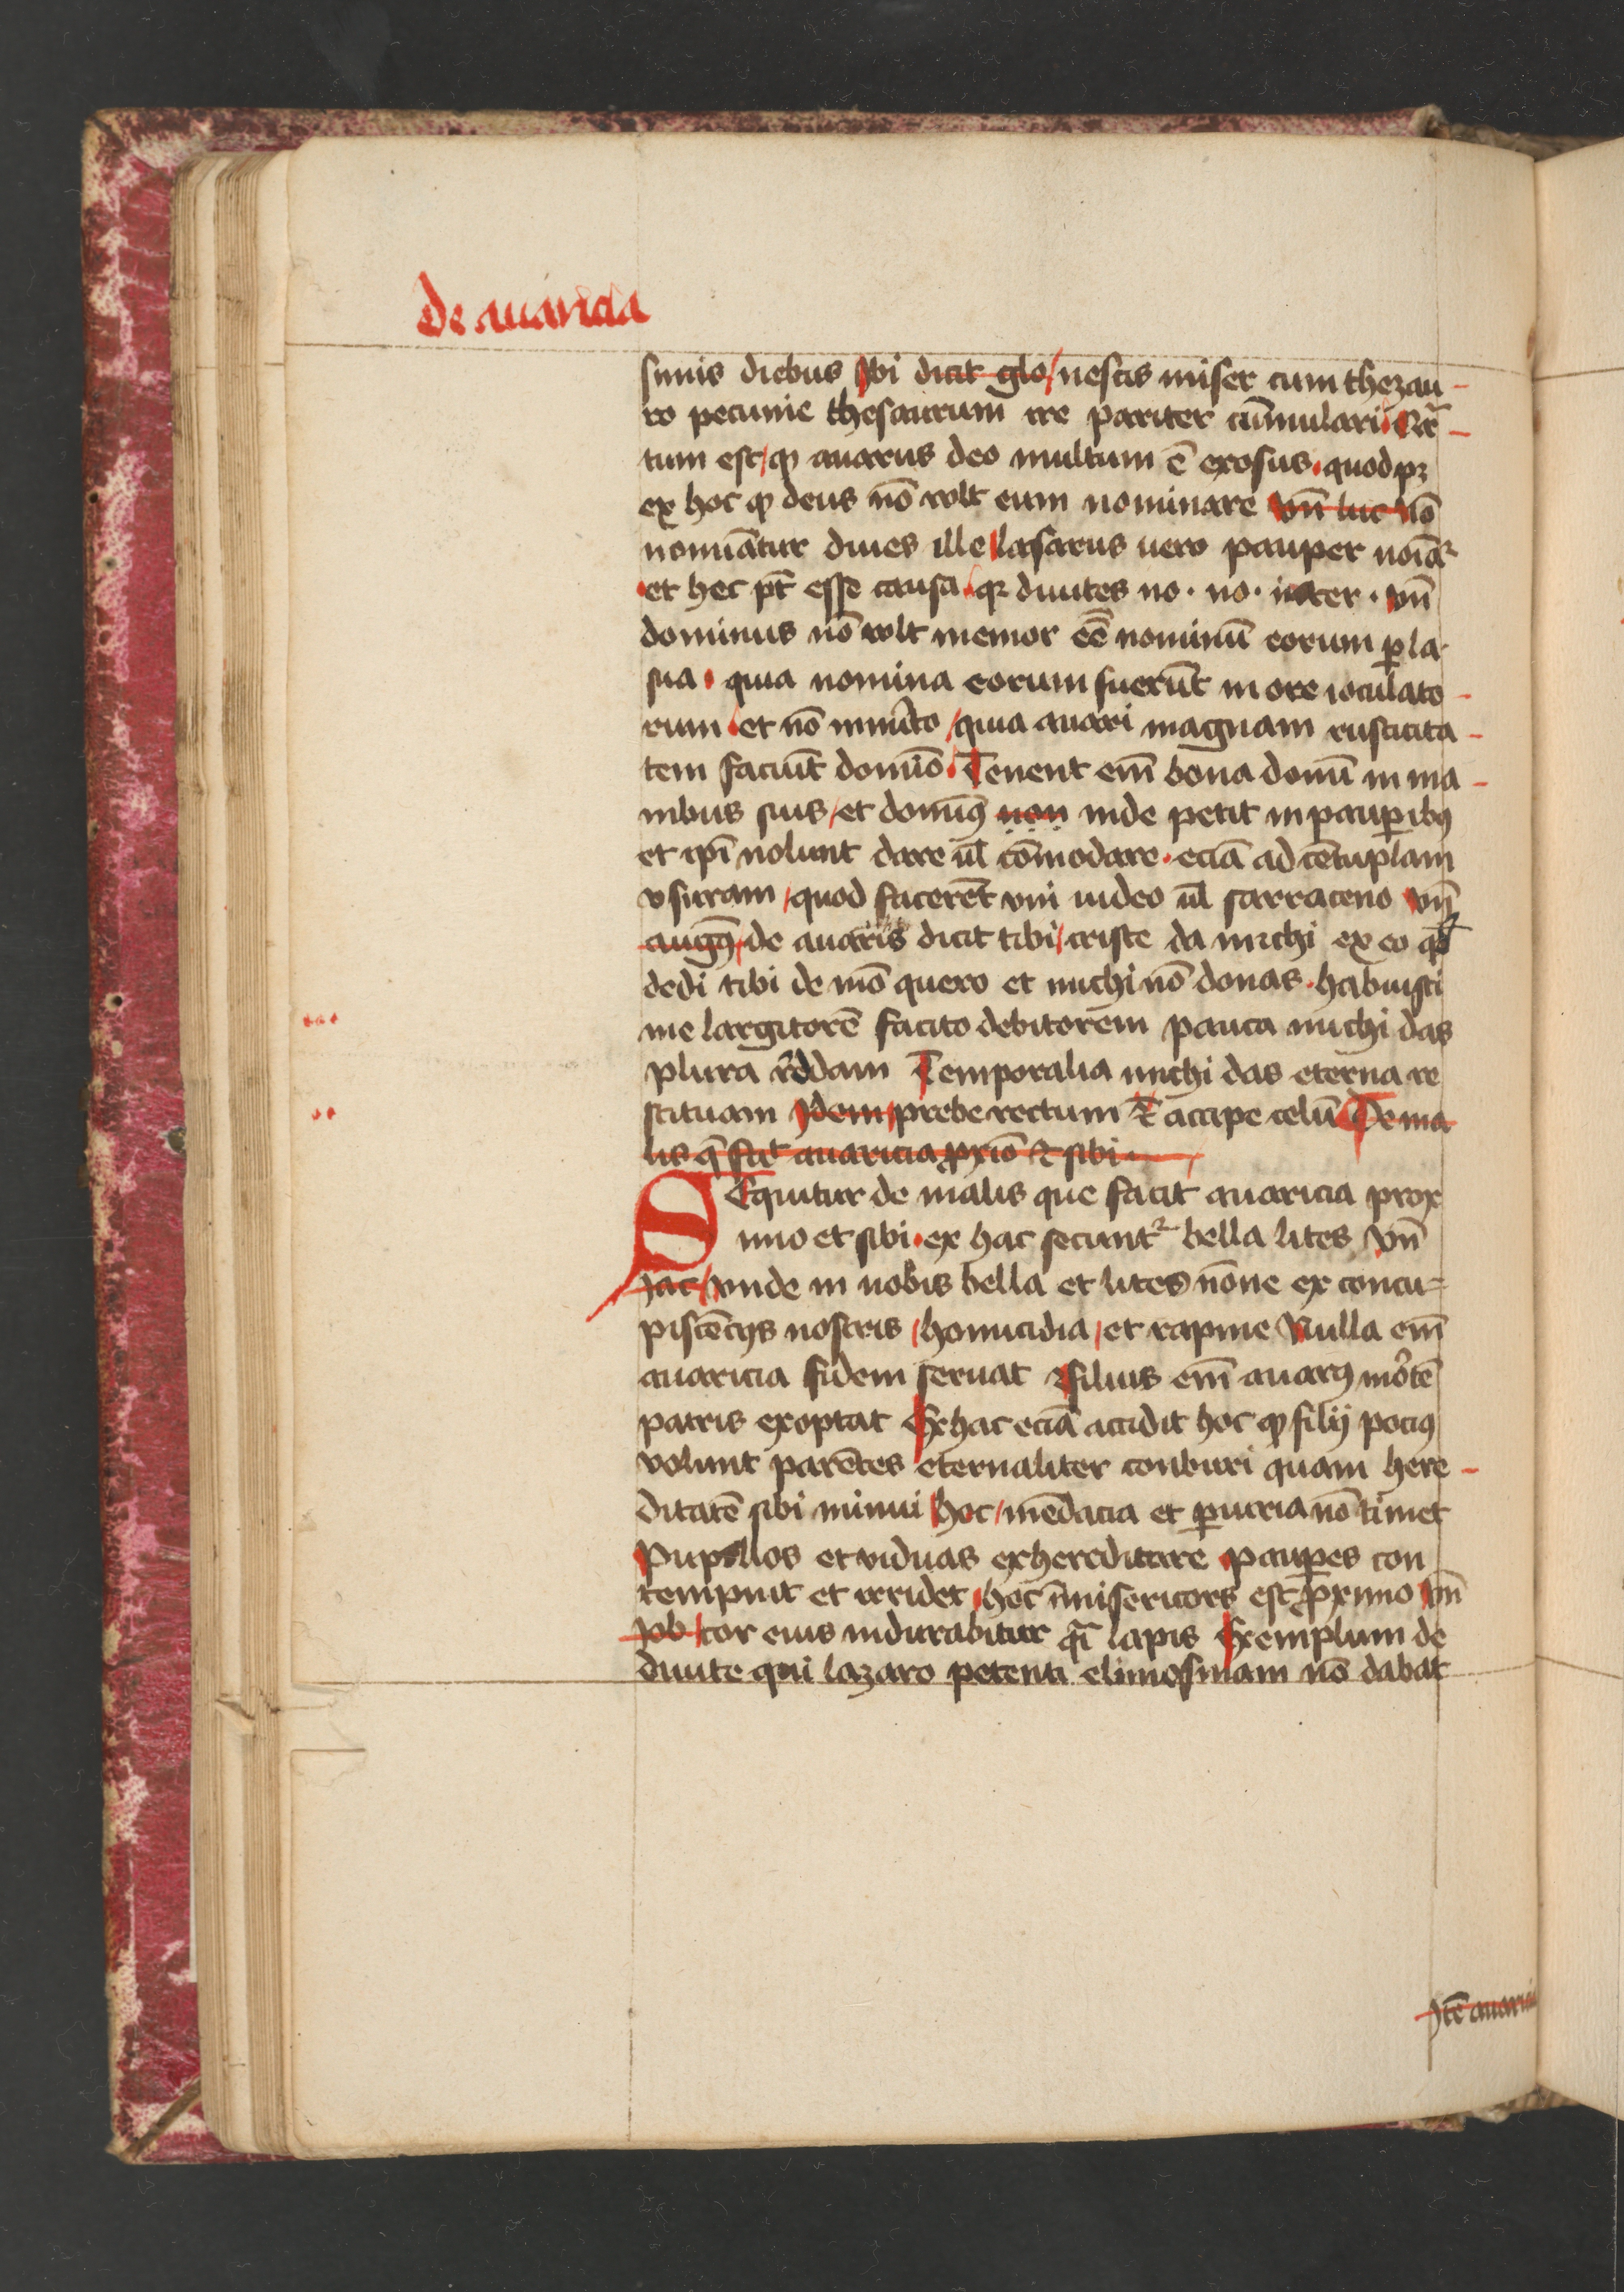 De auaricia
simis diebus vbi dicit glo nescis miser cum thezau
ro pecunie thesaurum ire pariter cūmulari Cer
tum est ꝙ auarus deo multum ē exosus quod pꝫ
ex hoc ꝙ deus nō vult eum nominare vn̄ luc nō
nomiātur diues ille lasarus uero pauper noīat̉
et hec pt̄ esse causa qꝛ diuites no. no. in ter. vn̄
dominus nō vult memor eē nominū eorum ꝑ la
sua quia nomina eorum fuerūt in ore ioculato
rum et nō inmīto quia auari magnam rusticita
tem faciūt domīo Tenent em̄ bona domī in ma
nibus suis et domīꝰ non inde petit in pauꝑibꝰ
et ip̄i nolunt dare ul̄ cōmodare eciā ad cētuplam
vsuram quod facerēt vni iudeo ul̄ sarraceno vn̄
augꝰ de auaris dicit tibi criste da michi ex eo qd̄
dedi tibi de mō quero et michi nō donas habuisti
me largitorē facito debitorem pauca michi das
plura rēddam Temporalia michi das eterna re
stituam Idem prebe rectum et accipe celū De ma
lis q̄ facit auaricia ꝓxīo et sibi
SEquitur de malis que facit auaricia prox
imo et sibi ex hac secuntꝛ bella lites vn̄
Iac vnde in nobis bella et lites nōne ex concu
piscēcijs nostris homicidia et rapine Nulla em̄
auaricia fidem seruat filius em̄ auarꝰ mortē
patris exoptat Ex hac eciā accidit hoc ꝙ filij pociꝰ
volunt parētes eternaliter conburi quam here
ditatē sibi minui hoc mēdacia et ꝑiuria nō timet
Pupillos et viduas exhereditare pauꝑes con
tempnit et irridet hoc īmisericors est ꝓximo vn̄
Iob cor eius indurabitur qͣi lapis Exemplum de
diuite qui lazaro petenti elimosinam nō dabat
Itē auarici